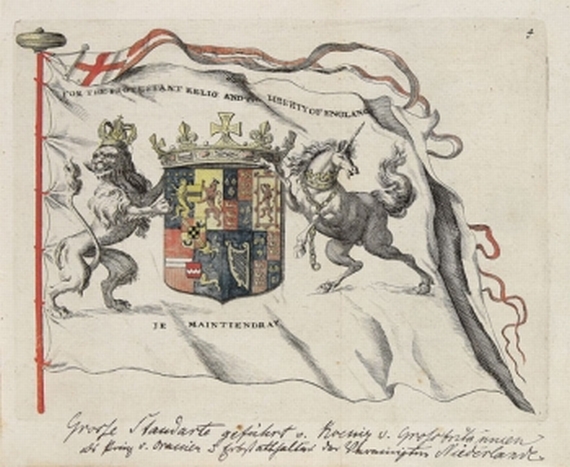 4
FOR THE PROTESTANT RELIG AND THE LIBERTY OF ENGLAND
JE MAINTIENDRAY
Grosse Standarte geführt v. Koenig v. Grossbritannien
als Prinz v. Oranien & Erbstatthalter der Vereinigten Niederlande.